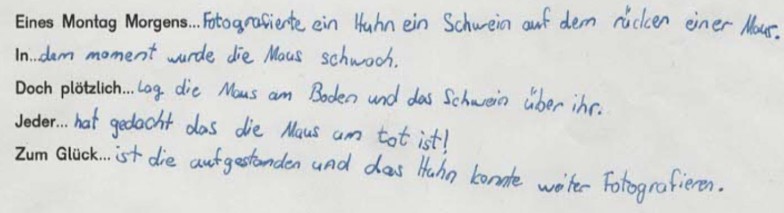 Eines Montag Morgens... Fotografierte ein Huhn ein Schwein auf dem rücken einer Maus.
In... dem moment wurde die Maus schwach.
Doch plötzlich... lag die Maus am Boden und das Schwein über ihr.
Jeder... hat gedacht das die Maus am tot ist!
Zum Glück... ist die aufgestanden und das Huhn konnte weiter Fotografieren.